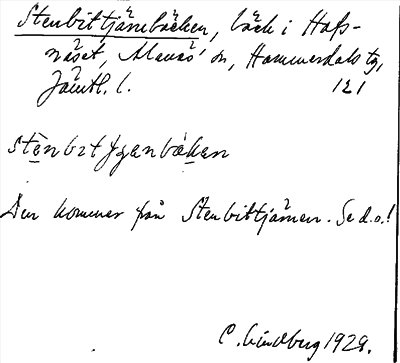 Stenbittjärnbäcken, bäck i Hafs-
näset, Alanäs sn, Hammerdals tg,
Jämtl. l. 121
Den kommer från Stenbittjärnen. Se d.o.!
C. Lindberg 1928.